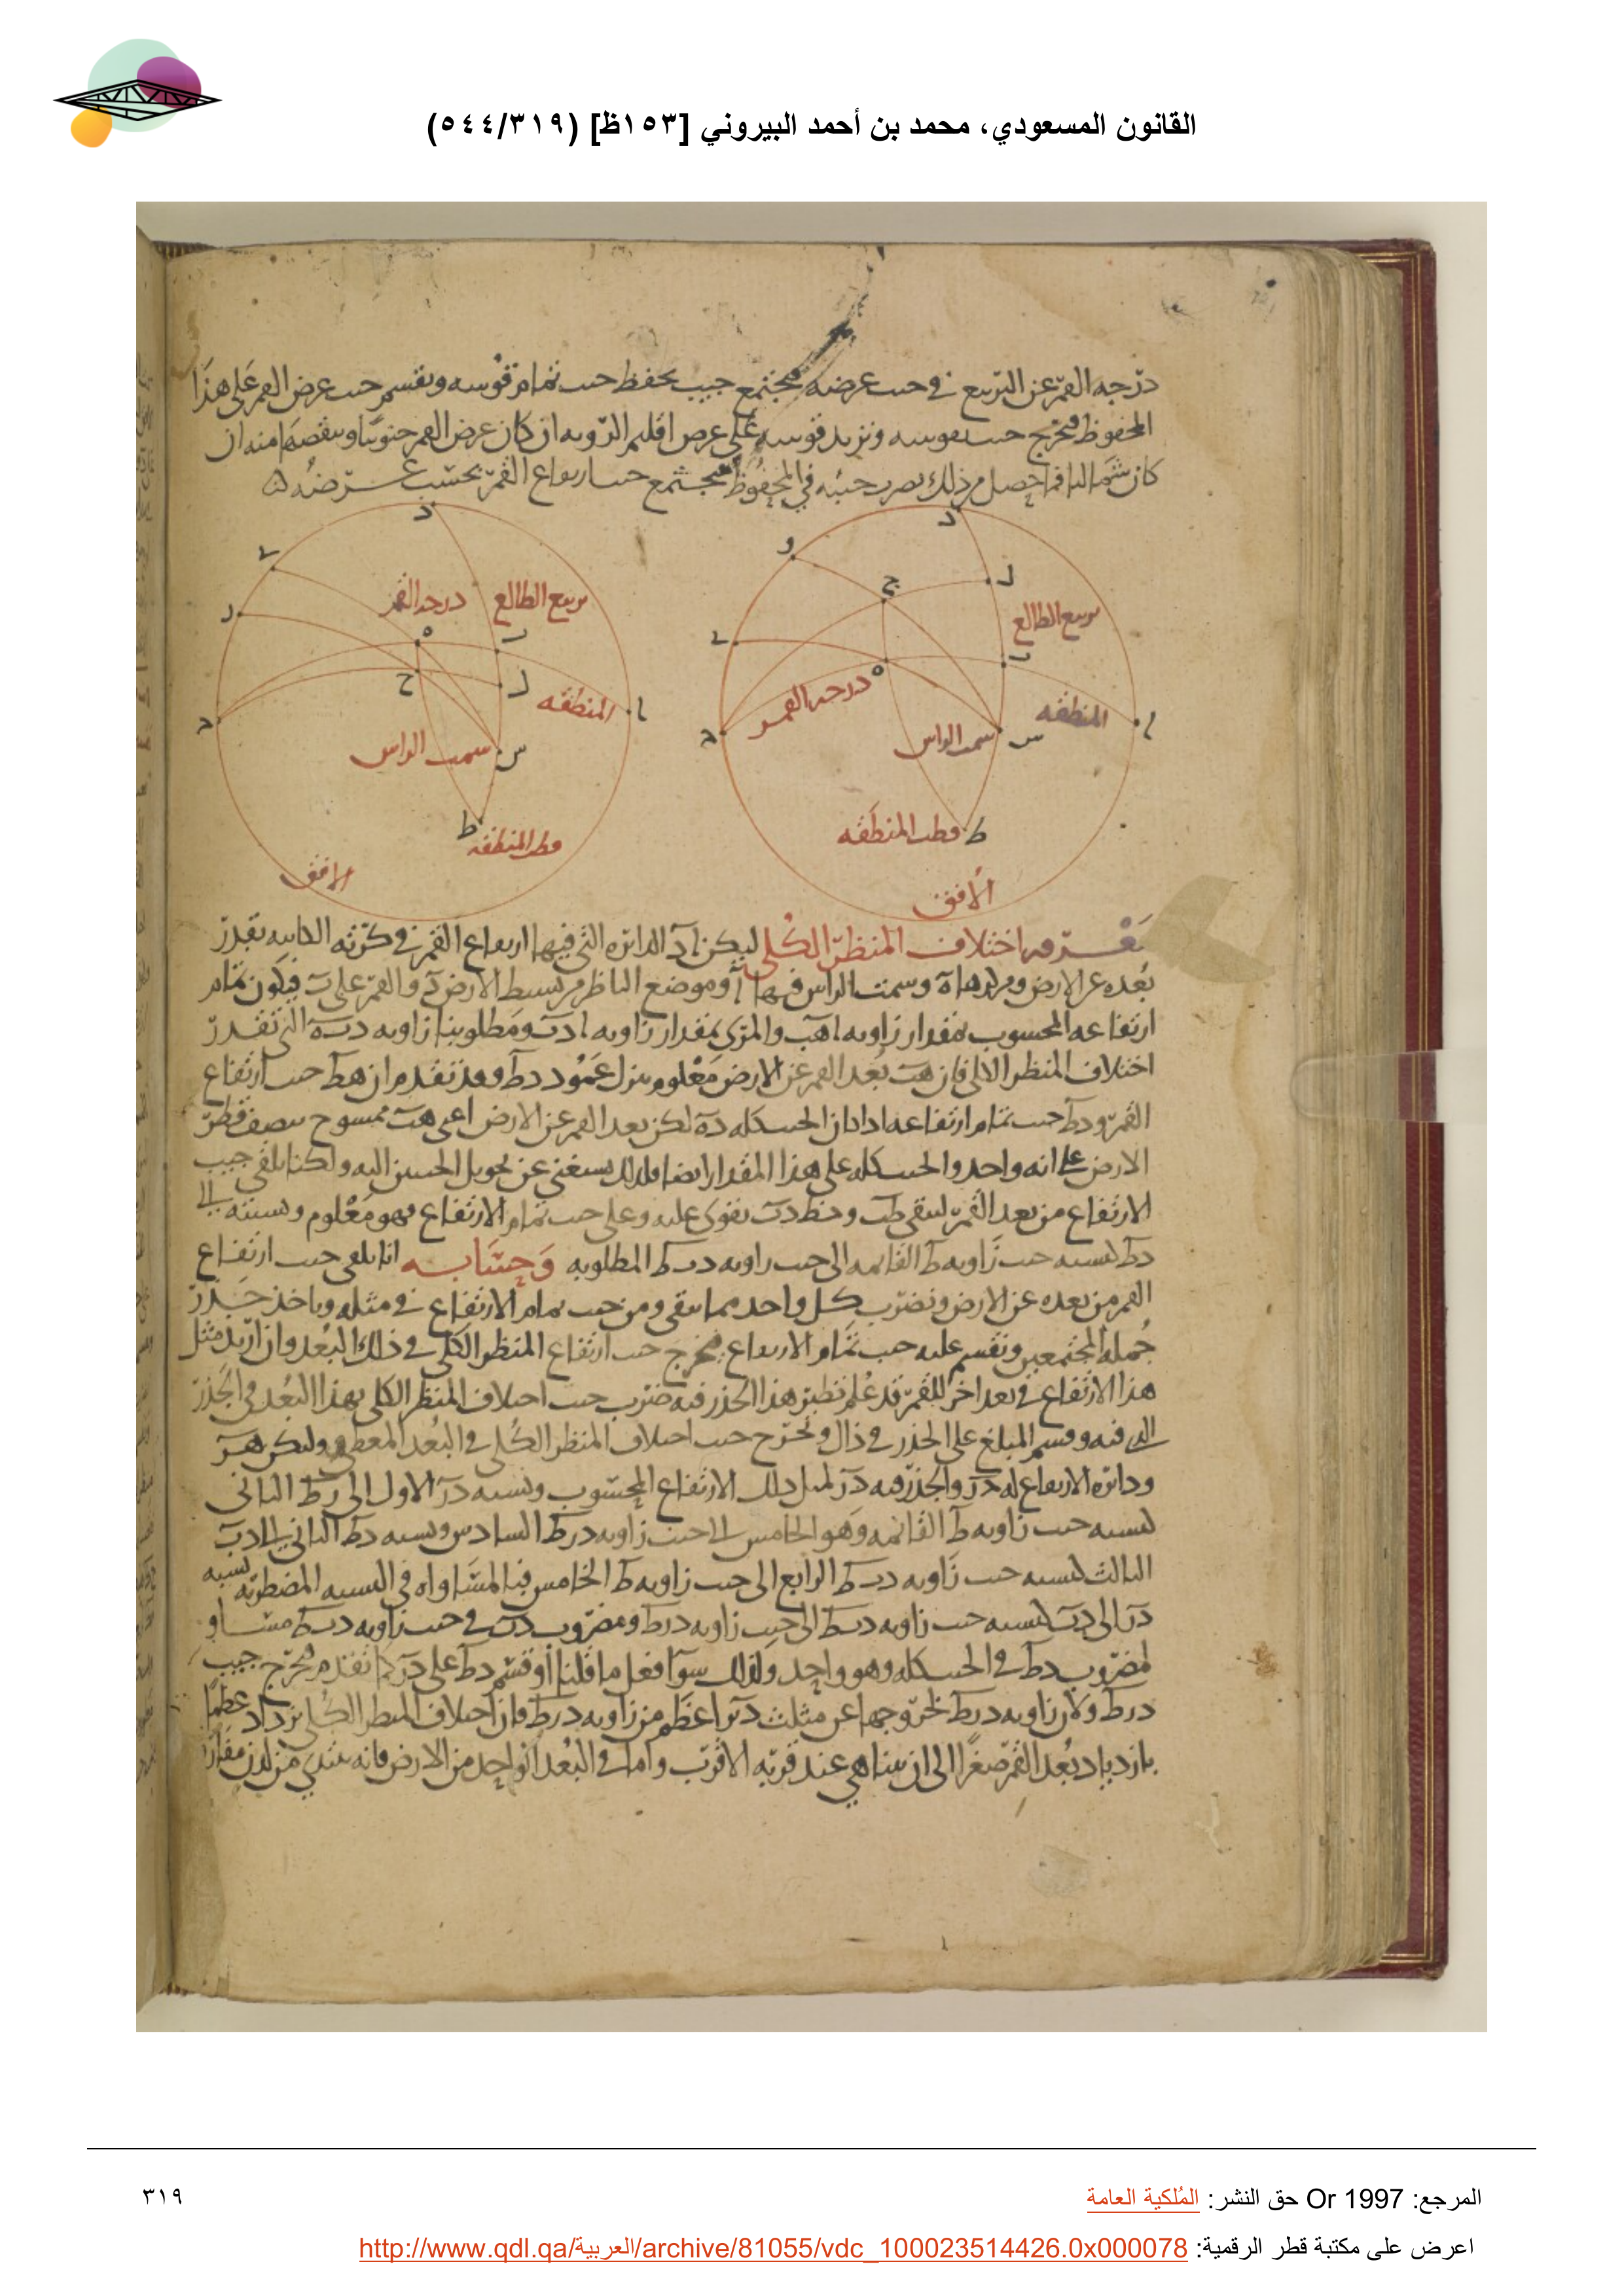 القانون المسعودي، محمد بن أحمد البيروني [١٥٣ظ] (٥٤٤/٣١٩)
درجه القمر عن التربيع في جيب عرضه فيجتمع جيب يحفظ جيب تمام قوسه ونقسم جيب عرض القمر على هذا
المحفوظ فيخرج جيب نقوسه ونزيد قوسه على عرض اقليم الرويه ان كان عرض القمر جنوبيا وينقصها منه ان
كان شماليا فما حصل من ذلك يضرب جيبه في المحفوظ فيجتمع جيب ارتفاع القمر بحسب عرضه
د
و
ج
ل
تربيع الطالع
ب
ه
درجه القمر
المنطقه
ا
سمت الراس
س
ط
قطب المنطقه
الافق
د
تربيع الطالع
درجه القمر
ه
ب
ح
ل
المنطقه
ا
سمت الراس
س
ط
قطب المنطقه
الافق
معرفه اختلاف المنظر الكلي ليكن الدائره التي فيها ارتفاع القمر في كرته بقدر
بعده عن الارض ومركزها ه وسمت الراس فيها ا وموضع الناظر من بسيط الارض د والقمر على ب فيكون تمام
ارتفاعه المحسوب بمقدار زاويه اهب والمرئى بمقدار زاويه ادب ومطلوبنا زاويه دبه التي تقدر
اختلاف المنظر فان هب بعد القمر عن الارض معلوم ننزل عمود دط وقد تقدم ان هط جيب ارتفاع
القمر ودط جيب تمام ارتفاعه اذا كان الجيب كله ده لكن بعد القمر عن الارض اعنى هب ممسوح بنصف قطر
الارض على انه واحد والجيب كله على هذا المقدار ايضا ولذلك يستغني عن تحويل الجيبين اليه ولكنا نلقي جيب
الارتفاع من بعد القمر ليبقى طب وخط دب يقوى عليه وعلى جيب تمام الارتفاع فهو معلوم ونسبته الى
دط كنسبه جيب زاويه ط القائمه الى جيب زاويه دبط المطلوبه وحسابه انا نلقى جيب ارتفاع
القمر من بعده عن الارض ونضرب كل واحد مما يبقى ومن جيب تمام الارتفاع في مثله وناخذ جذر
جمله المجتمعين ونقسم عليه جيب تمام الارتفاع فيخرج جيب المنظر الكلي في ذلك البعد وان اريد مثل
هذا الارتفاع في بعد اخر للقمر قد علم نظير هذا الجذر فيه ضرب جيب اختلاف المنظر الكلي بهذا البعد في الجذر
الذي فيه وقسم المبلغ على الجذر في ذاك ويخرج جيب اختلاف المنظر الكلي في البعد المعطى وليكن هر
ودائره الارتفاع له در والجذر فيه در لمثل ذلك الارتفاع المحسوب ونسبه در الاول الى دط الثانى
كنسبه جيب زاويه ط القائمه وهو الخامس الى جيب زاويه درط السادس ونسبه دط الثاني الى دب
الثالث كنسبه جيب زاويه دبط الرابع الى جيب زاويه ط الخامس فبالمساواه في النسبه المضطربه نسبه
در الى دب كنسبه جيب زاويه دبط الى جيب زاويه درط ومضروب دب في جيب زاويه دبط مساو
لمضروب دط في الجيب كله وهو واحد ولذلك سوا فعل ما قلنا او قسم دط على در كما تقدم فيخرج جيب
درط ولان زاويه دبط لخروجها عن مثلث دبر اعظم من زاويه درط فان اختلاف المنظر الكلي يزداد عظما
بازدياد بعد القمر صغرا الى ان يتناهى عند قربه الاقرب واما في البعد الواحد من الارض فانه يبتدي من لدن
المرجع: Or 1997 حق النشر: المُلكية العامة
٣١٩
اعرض على مكتبة قطر الرقمية: http://www.qdl.qa/العربية/archive/81055/vdc_100023514426.0x000078